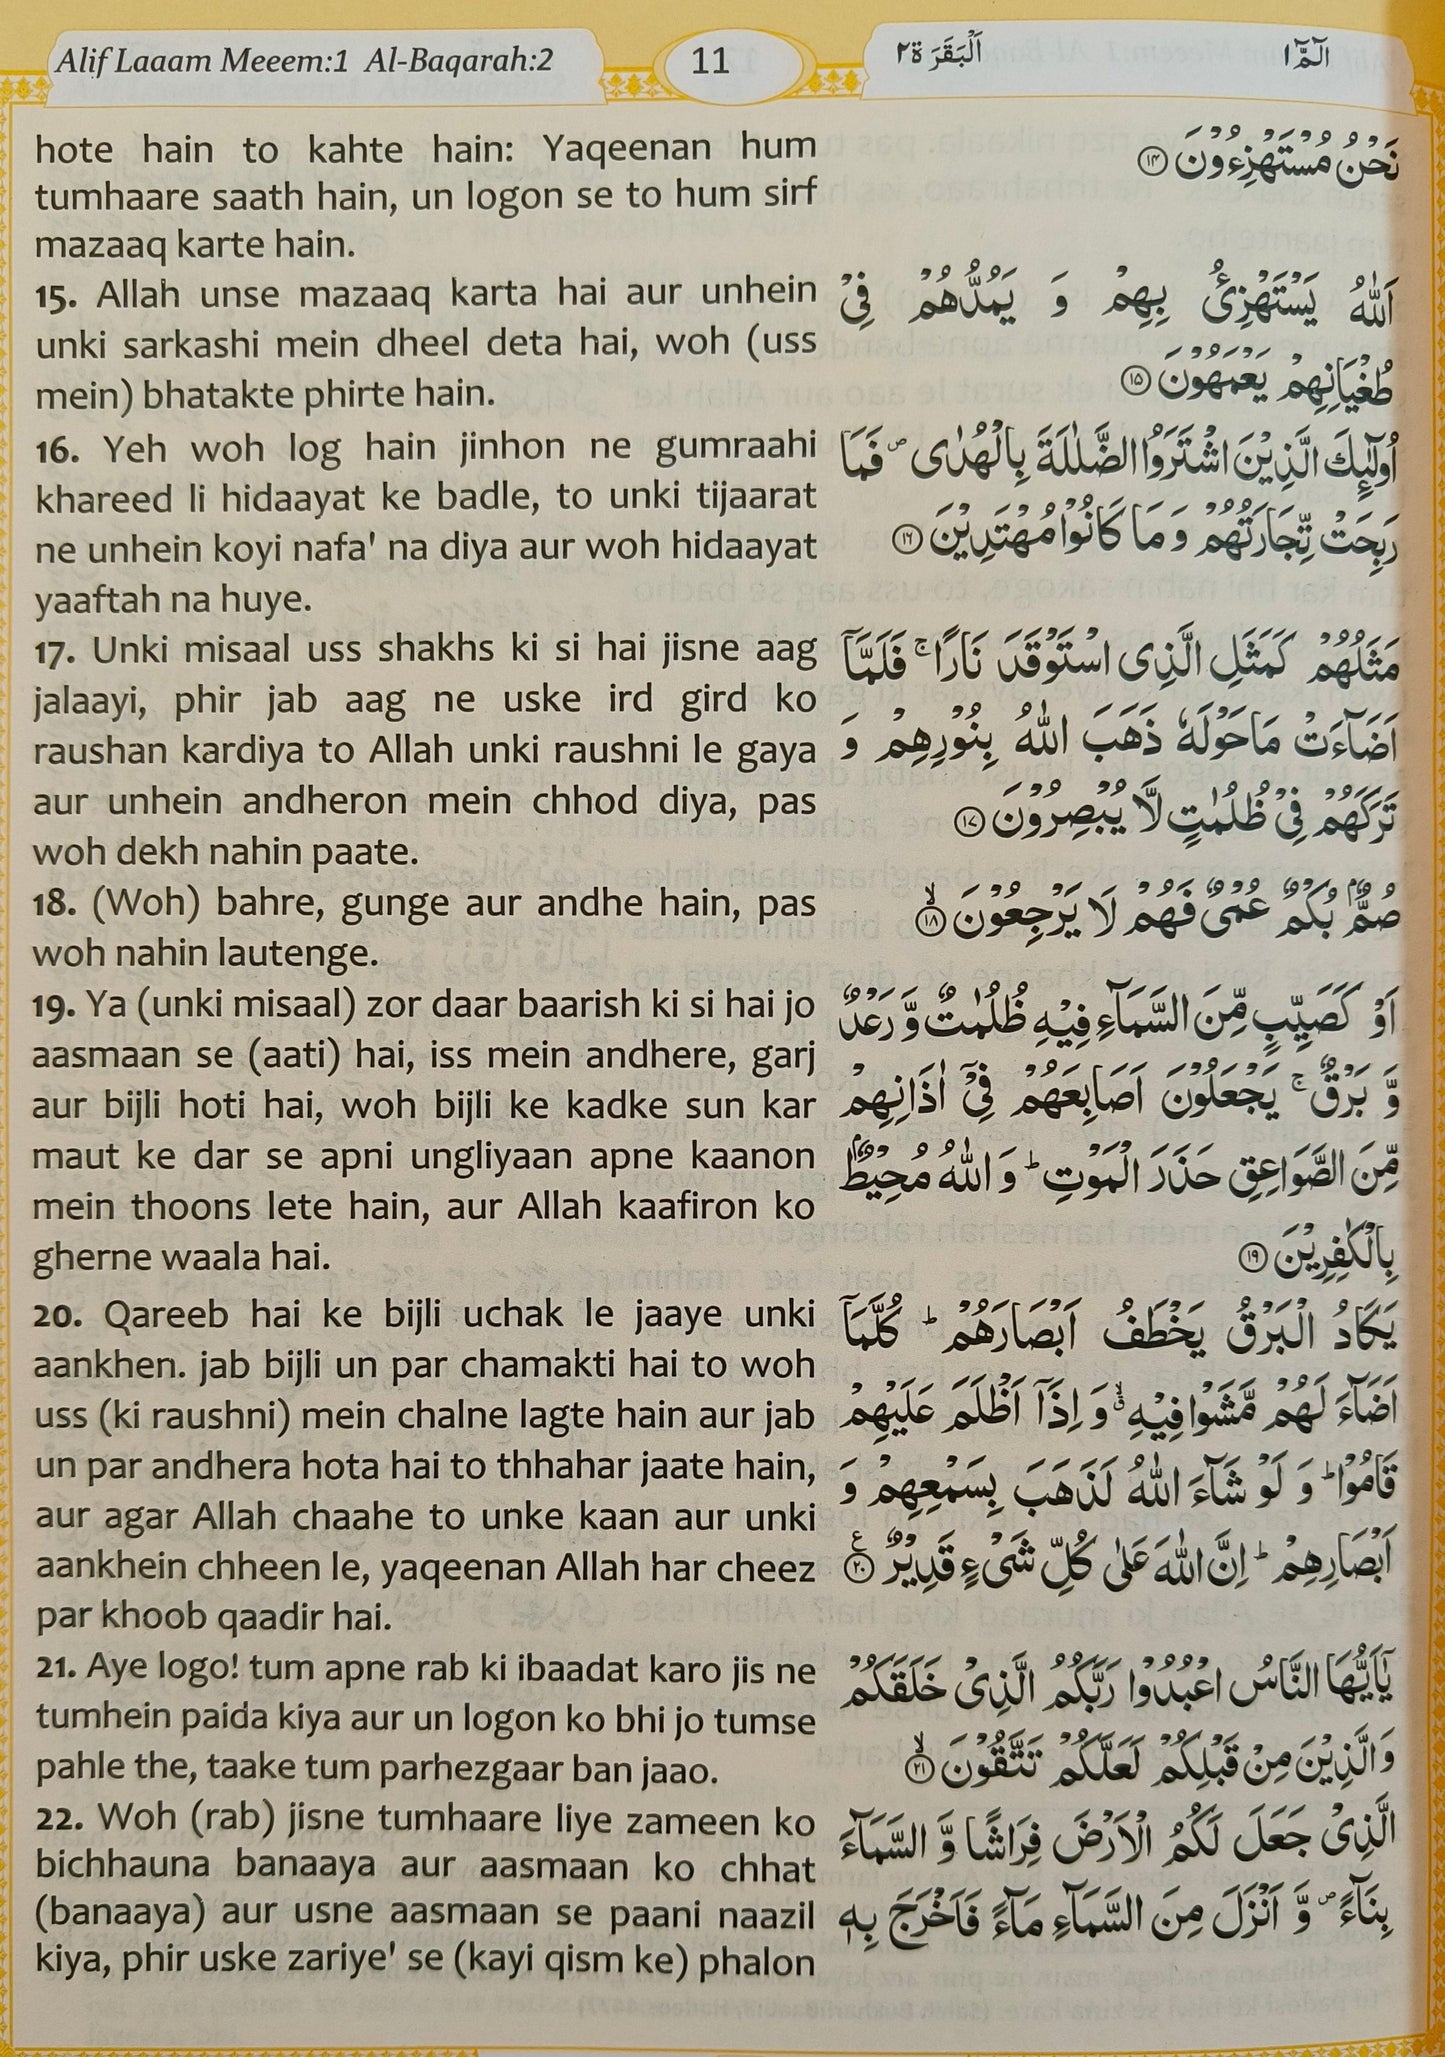 Alif Laaam Meeem:1 Al-Baqarah:2
11
اَلْبَقَرَة٢
الٓمّٓ١
hote hain to kahte hain: Yaqeenan hum
tumhaare saath hain, un logon se to hum sirf
mazaaq karte hain.
15. Allah unse mazaaq karta hai aur unhein
unki sarkashi mein dheel deta hai, woh (uss
mein) bhatakte phirte hain.
16. Yeh woh log hain jinhon ne gumraahi
khareed li hidaayat ke badle, to unki tijaarat
ne unhein koyi nafa' na diya aur woh hidaayat
yaaftah na huye.
17. Unki misaal uss shakhs ki si hai jisne aag
jalaayi, phir jab aag ne uske ird gird ko
raushan kardiya to Allah unki raushni le gaya
aur unhein andheron mein chhod diya, pas
woh dekh nahin paate.
18. (Woh) bahre, gunge aur andhe hain, pas
woh nahin lautenge.
19. Ya (unki misaal) zor daar baarish ki si hai jo
aasmaan se (aati) hai, iss mein andhere, garj
aur bijli hoti hai, woh bijli ke kadke sun kar
maut ke dar se apni ungliyaan apne kaanon
mein thoons lete hain, aur Allah kaafiron ko
gherne waala hai.
20. Qareeb hai ke bijli uchak le jaaye unki
aankhen. jab bijli un par chamakti hai to woh
uss (ki raushni) mein chalne lagte hain aur jab
un par andhera hota hai to thhahar jaate hain,
aur agar Allah chaahe to unke kaan aur unki
aankhein chheen le, yaqeenan Allah har cheez
par khoob qaadir hai.
21. Aye logo! tum apne rab ki ibaadat karo jis ne
tumhein paida kiya aur un logon ko bhi jo tumse
pahle the, taake tum parhezgaar ban jaao.
22. Woh (rab) jisne tumhaare liye zameen ko
bichhauna banaaya aur aasmaan ko chhat
(banaaya) aur usne aasmaan se paani naazil
kiya, phir uske zariye' se (kayi qism ke) phalon
نَحْنُ مُسْتَهْزِءُوْنَ ۝١٤
اَللّٰهُ يَسْتَهْزِئُ بِهِمْ وَ يَمُدُّهُمْ فِيْ
طُغْيَانِهِمْ يَعْمَهُوْنَ ۝١٥
اُولٰٓئِكَ الَّذِيْنَ اشْتَرَوُا الضَّلٰلَةَ بِالْهُدٰى ۠ فَمَا
رَبِحَتْ تِّجَارَتُهُمْ وَمَا كَانُوْا مُهْتَدِيْنَ ۝١٦
مَثَلُهُمْ كَمَثَلِ الَّذِى اسْتَوْقَدَ نَارًا ۚ فَلَمَّآ
اَضَآءَتْ مَاحَوْلَهٗ ذَهَبَ اللّٰهُ بِنُوْرِهِمْ وَ
تَرَكَهُمْ فِيْ ظُلُمٰتٍ لَّا يُبْصِرُوْنَ ۝١٧
صُمٌّۢ بُكْمٌ عُمْىٌ فَهُمْ لَا يَرْجِعُوْنَ ۝١٨ۙ
اَوْ كَصَيِّبٍ مِّنَ السَّمَآءِ فِيْهِ ظُلُمٰتٌ وَّ رَعْدٌ
وَّ بَرْقٌ ۚ يَجْعَلُوْنَ اَصَابِعَهُمْ فِيْٓ اٰذَانِهِمْ
مِّنَ الصَّوَاعِقِ حَذَرَ الْمَوْتِ ؕ وَاللّٰهُ مُحِيْطٌۢ
بِالْكٰفِرِيْنَ ۝١٩
يَكَادُ الْبَرْقُ يَخْطَفُ اَبْصَارَهُمْ ؕ كُلَّمَآ
اَضَآءَ لَهُمْ مَّشَوْا فِيْهِ ۙۗ وَ اِذَآ اَظْلَمَ عَلَيْهِمْ
قَامُوْا ؕ وَ لَوْ شَآءَ اللّٰهُ لَذَهَبَ بِسَمْعِهِمْ وَ
اَبْصَارِهِمْ ؕ اِنَّ اللّٰهَ عَلٰى كُلِّ شَىْءٍ قَدِيْرٌ ۝٢٠ع
يٰٓاَيُّهَا النَّاسُ اعْبُدُوْا رَبَّكُمُ الَّذِىْ خَلَقَكُمْ
وَالَّذِيْنَ مِنْ قَبْلِكُمْ لَعَلَّكُمْ تَتَّقُوْنَ ۝٢١ۙ
الَّذِىْ جَعَلَ لَكُمُ الْاَرْضَ فِرَاشًا وَّ السَّمَآءَ
بِنَآءً ۪ وَّ اَنْزَلَ مِنَ السَّمَآءِ مَآءً فَاَخْرَجَ بِهٖ